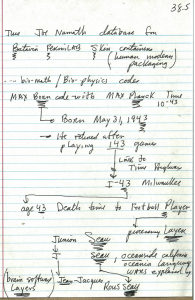 385
The Joe Namath database for
Skin containers
(human modern
packaging)
bio-math / Bio-physics codes
MAX Born code with MAX Planck Time
10-43
Born May 31, 1943
He retired after
playing 143 games
Link to
Time Highway
I-43 Milwaukee
age 43 Death time to Football Player
processing Layer
Junior Seau
43 Seau, oceanside california
oceanic language
waves explained by
(brain software Jean-Jacques
Layers) Rousseau